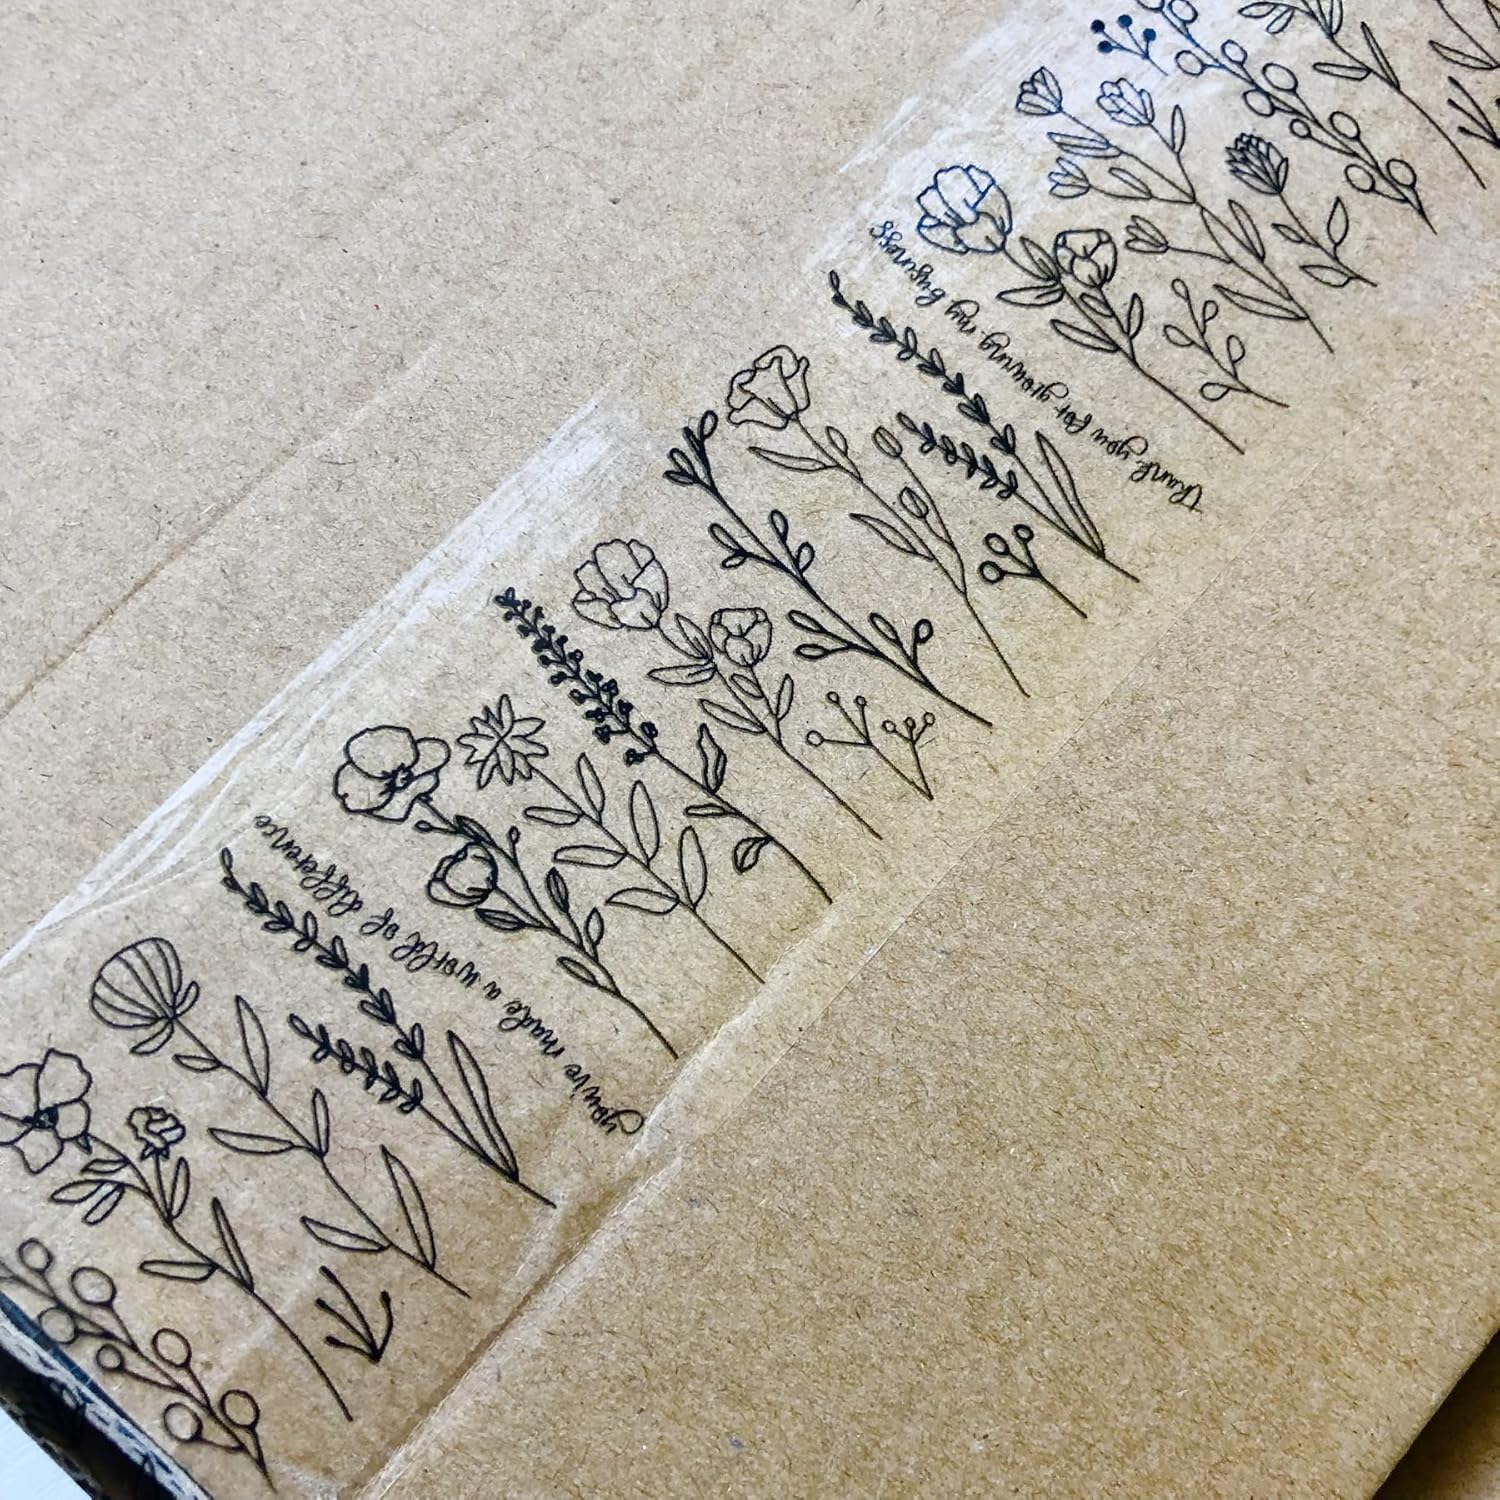 thank you for growing my business
you've made a world of difference